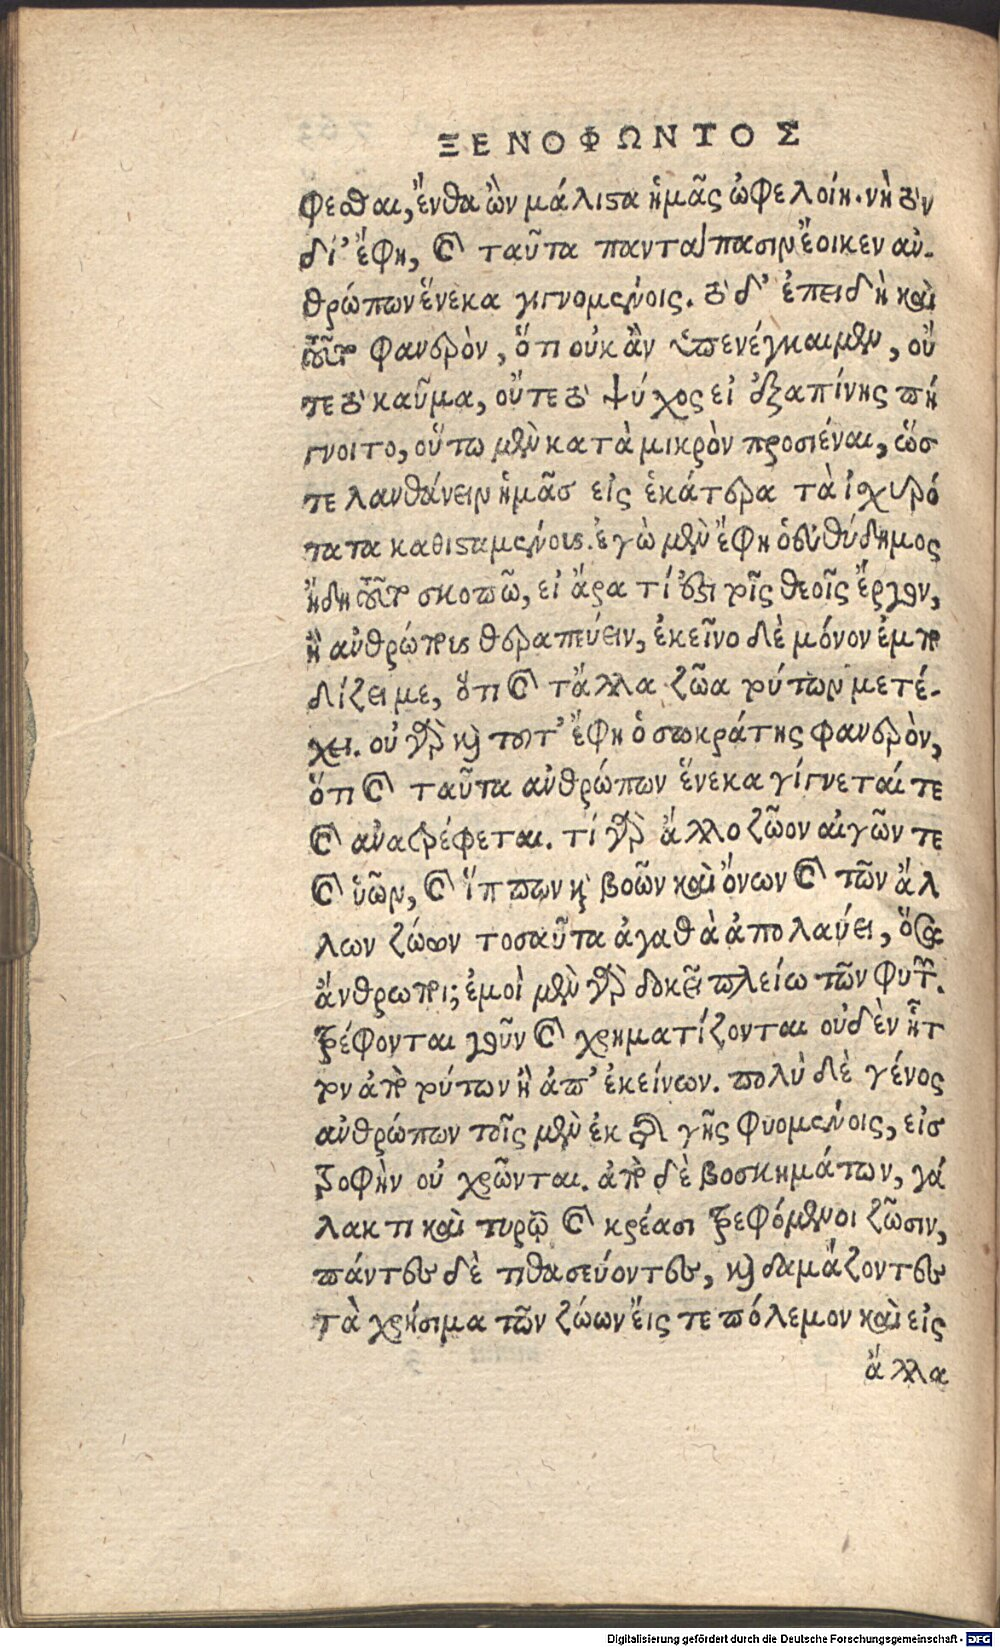 ΞΕΝΟΦΩΝΤΟΣ
φεσθαι, ἔνθα ὢν μάλιστα ἡμᾶς ὠφελοίη. νὴ τὸν
δί' ἔφη, καὶ ταῦτα πανταπασιν ἔοικεν ἀν-
θρώπων ἕνεκα γιγνομένοις. τὸ δ' ἐπειδὴ καὶ
τοῦτο φανερὸν, ὅτι οὐκ ἂν ὑπενέγκαιμεν, οὔ
τε τὸ καῦμα, οὔτε τὸ ψύχος εἰ ἐξαπίνης πή
γνοιτο, οὕτω μὲν κατὰ μικρὸν προσιέναι, ὥσ
τε λανθάνειν ἡμᾶσ εἰς ἑκάτερα τὰ ἰχυρό
τατα καθισταμένους. ἐγὼ μὲν ἔφη ὁ εὐθύδημος
ἤδη τοῦτο σκοπῶ, εἰ ἄρα τί ἐστι τοῖς θεοῖς ἔργον,
ἢ ἀνθρώπους θεραπεύειν, ἐκεῖνο δὲ μόνον ἐμπο
δίζει με, ὅτι καὶ τἄλλα ζῶα τούτων μετέ-
χει. οὐ γὰρ καὶ τοῦτ' ἔφη ὁ σωκράτης φανερὸν,
ὅτι καὶ ταῦτα ἀνθρώπων ἕνεκα γίγνεταί τε
καὶ ἀναστρέφεται. τί γὰρ ἄλλο ζῶον αἰγῶν τε
καὶ ὑῶν, καὶ ἵππων καὶ βοῶν καὶ ὄνων καὶ τῶν ἄλ
λων ζώων τοσαῦτα ἀγαθὰ ἀπολαύει, ὅσα
ἄνθρωποι; ἐμοὶ μὲν γὰρ δοκεῖ πλείω τῶν φυτῶν.
τρέφονται γοῦν καὶ χρηματίζονται οὐδὲν ἧτ
τον ἀπὸ τούτων ἢ ἀπ' ἐκείνων. πολὺ δὲ γένος
ἀνθρώπων τοῖς μὲν ἐκ τῆς γῆς φυομένοις, εἰσ
τροφὴν οὐ χρῶνται. ἀπὸ δὲ βοσκημάτων, γά
λακτι καὶ τυρῷ καὶ κρέασι τρεφόμενοι ζῶσιν,
πάντες δὲ τιθασεύοντες, καὶ δαμάζοντες
τὰ χρήσιμα τῶν ζώων εἴς τε πόλεμον καὶ εἰς
ἄλλα
Digitalisierung gefördert durch die Deutsche Forschungsgemeinschaft - DFG